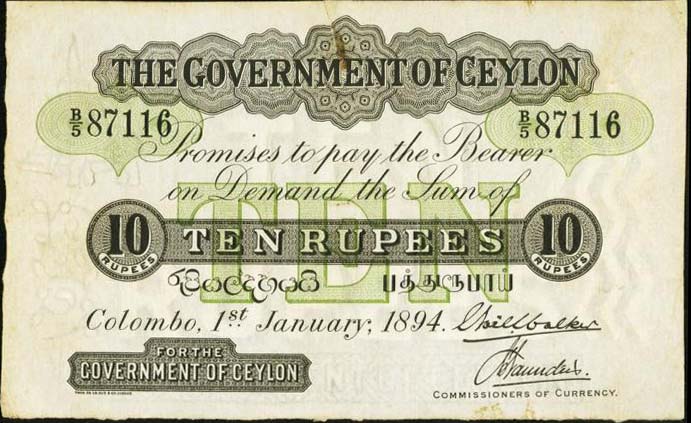 THE GOVERNMENT OF CEYLON
B/5 87116 B/5 87116
Promises to pay the Bearer
on Demand the Sum of
TEN
10 RUPEES TEN RUPEES 10 RUPEES
රුපියල් දහයයි பத்துரூபாய்
Colombo, 1st January, 1894.
FOR THE
GOVERNMENT OF CEYLON
COMMISSIONERS OF CURRENCY.